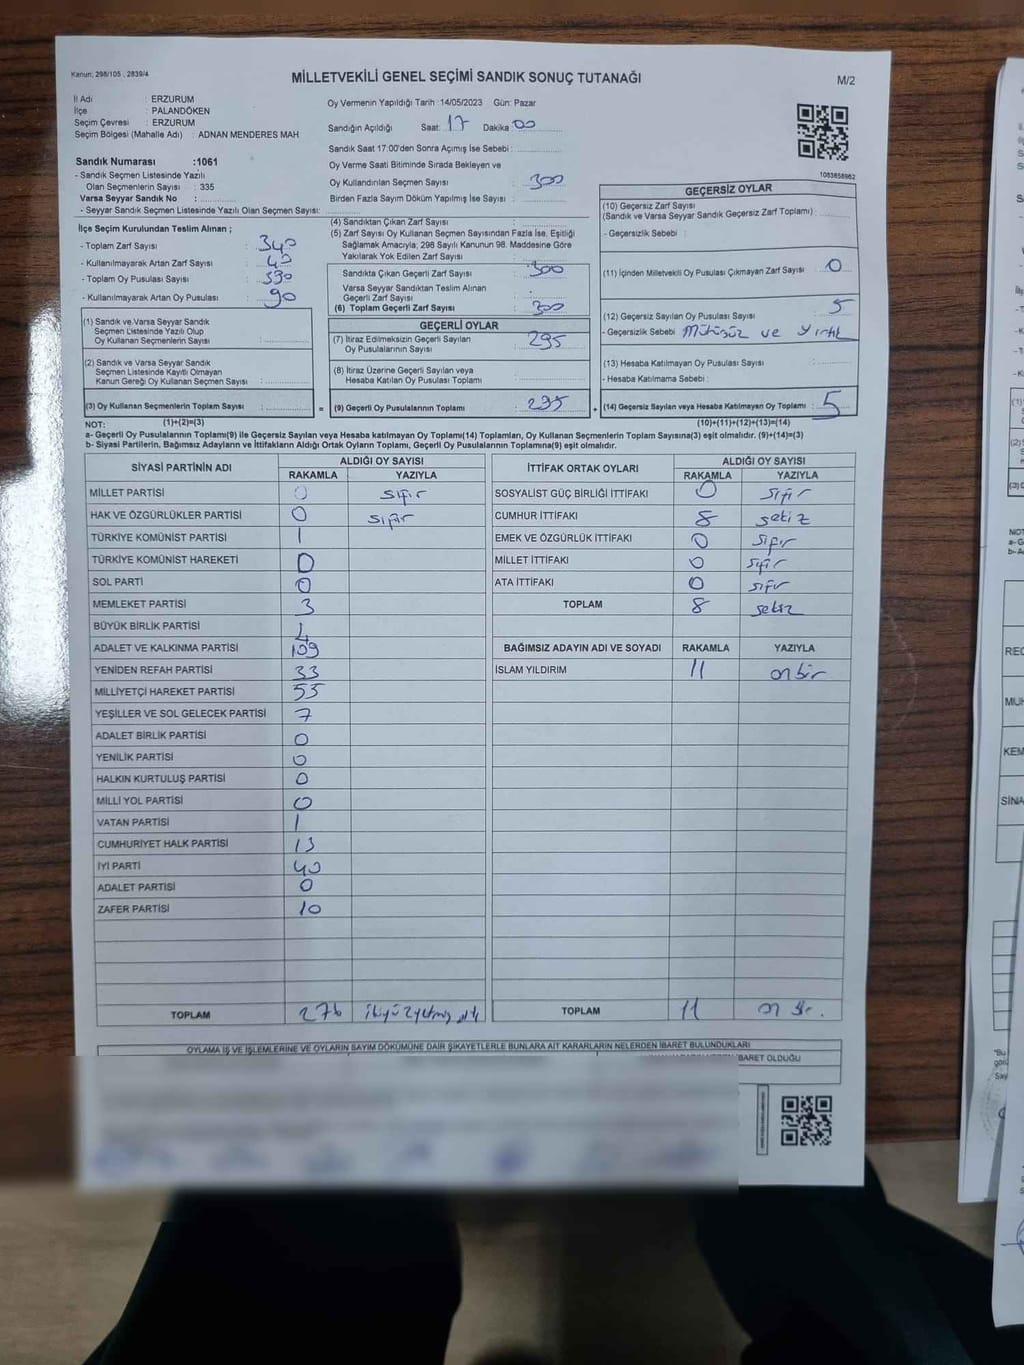 Kanun, 298/105 , 2839/4
MİLLETVEKİLİ GENEL SEÇİMİ SANDIK SONUÇ TUTANAĞI
M/2
İl Adı : ERZURUM
İlçe : PALANDÖKEN
Seçim Çevresi : ERZURUM
Seçim Bölgesi (Mahalle Adı) : ADNAN MENDERES MAH
Sandık Numarası :1061
- Sandık Seçmen Listesinde Yazılı
Olan Seçmenlerin Sayısı : 335
Varsa Seyyar Sandık No :
- Seyyar Sandık Seçmen Listesinde Yazılı Olan Seçmen Sayısı:
Oy Vermenin Yapıldığı Tarih :14/05/2023 Gün: Pazar
Sandığın Açıldığı Saat: 17 Dakika 00
Sandık Saat 17:00'den Sonra Açılmış İse Sebebi :
Oy Verme Saati Bitiminde Sırada Bekleyen ve
Oy Kullandırılan Seçmen Sayısı : 300
Birden Fazla Sayım Döküm Yapılmış İse Sayısı :
1083658962
İlçe Seçim Kurulundan Teslim Alınan ;
- Toplam Zarf Sayısı : 340
- Kullanılmayarak Artan Zarf Sayısı : 40
- Toplam Oy Pusulası Sayısı : 390
- Kullanılmayarak Artan Oy Pusulası : 90
(1) Sandık ve Varsa Seyyar Sandık
Seçmen Listesinde Yazılı Olup
Oy Kullanan Seçmenlerin Sayısı :
(2) Sandık ve Varsa Seyyar Sandık
Seçmen Listesinde Kayıtlı Olmayan
Kanun Gereği Oy Kullanan Seçmen Sayısı :
(3) Oy Kullanan Seçmenlerin Toplam Sayısı :
(4) Sandıktan Çıkan Zarf Sayısı :
(5) Zarf Sayısı Oy Kullanan Seçmen Sayısından Fazla İse, Eşitliği
Sağlamak Amacıyla; 298 Sayılı Kanunun 98. Maddesine Göre
Yakılarak Yok Edilen Zarf Sayısı :
Sandıkta Çıkan Geçerli Zarf Sayısı : 300
Varsa Seyyar Sandıktan Teslim Alınan
Geçerli Zarf Sayısı :
(6) Toplam Geçerli Zarf Sayısı : 300
GEÇERLİ OYLAR
(7) İtiraz Edilmeksizin Geçerli Sayılan
Oy Pusulalarının Sayısı : 295
(8) İtiraz Üzerine Geçerli Sayılan veya
Hesaba Katılan Oy Pusulası Toplamı :
= (9) Geçerli Oy Pusulalarının Toplamı : 295
GEÇERSİZ OYLAR
(10) Geçersiz Zarf Sayısı
(Sandık ve Varsa Seyyar Sandık Geçersiz Zarf Toplamı) :
- Geçersizlik Sebebi :
(11) İçinden Milletvekili Oy Pusulası Çıkmayan Zarf Sayısı : 0
(12) Geçersiz Sayılan Oy Pusulası Sayısı : 5
- Geçersizlik Sebebi Mühürsüz ve Yırtık
(13) Hesaba Katılmayan Oy Pusulası Sayısı :
- Hesaba Katılmama Sebebi :
+ (14) Geçersiz Sayılan veya Hesaba Katılmayan Oy Toplamı : 5
NOT: (1)+(2)=(3) (10)+(11)+(12)+(13)=(14)
a- Geçerli Oy Pusulalarının Toplamı(9) ile Geçersiz Sayılan veya Hesaba katılmayan Oy Toplamı(14) Toplamları, Oy Kullanan Seçmenlerin Toplam Sayısına(3) eşit olmalıdır. (9)+(14)=(3)
b- Siyasi Partilerin, Bağımsız Adayların ve İttifakların Aldığı Ortak Oyların Toplamı, Geçerli Oy Pusulalarının Toplamına(9) eşit olmalıdır.
SİYASİ PARTİNİN ADI ALDIĞI OY SAYISI
RAKAMLA YAZIYLA
MİLLET PARTİSİ 0 sıfır
HAK VE ÖZGÜRLÜKLER PARTİSİ 0 sıfır
TÜRKİYE KOMÜNİST PARTİSİ 1
TÜRKİYE KOMÜNİST HAREKETİ 0
SOL PARTİ 0
MEMLEKET PARTİSİ 3
BÜYÜK BİRLİK PARTİSİ
ADALET VE KALKINMA PARTİSİ 109
YENİDEN REFAH PARTİSİ 33
MİLLİYETÇİ HAREKET PARTİSİ 55
YEŞİLLER VE SOL GELECEK PARTİSİ 7
ADALET BİRLİK PARTİSİ 0
YENİLİK PARTİSİ 0
HALKIN KURTULUŞ PARTİSİ 0
MİLLİ YOL PARTİSİ 0
VATAN PARTİSİ 1
CUMHURİYET HALK PARTİSİ 13
İYİ PARTİ 40
ADALET PARTİSİ 0
ZAFER PARTİSİ 10
TOPLAM 276
İTTİFAK ORTAK OYLARI ALDIĞI OY SAYISI
RAKAMLA YAZIYLA
SOSYALİST GÜÇ BİRLİĞİ İTTİFAKI 0 sıfır
CUMHUR İTTİFAKI 8 sekiz
EMEK VE ÖZGÜRLÜK İTTİFAKI 0 sıfır
MİLLET İTTİFAKI 0 sıfır
ATA İTTİFAKI 0 sıfır
TOPLAM 8 sekiz
BAĞIMSIZ ADAYIN ADI VE SOYADI RAKAMLA YAZIYLA
İSLAM YILDIRIM 11 onbir
TOPLAM 11 on bir.
OYLAMA İŞ VE İŞLEMLERİNE VE OYLARIN SAYIM DÖKÜMÜNE DAİR ŞİKAYETLERLE BUNLARA AİT KARARLARIN NELERDEN İBARET BULUNDUKLARI
İBARET OLDUĞU